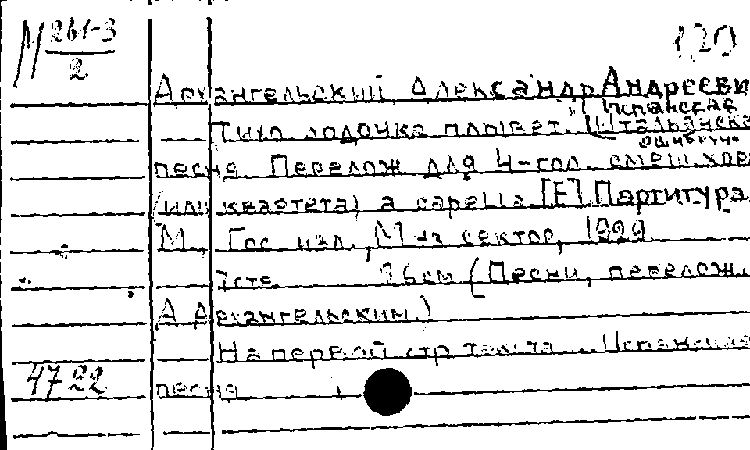 М 261-3
2
1,20
Архангельский, Александр Андреевич
Испанская
"Тихо лодочка плывет." (Итальянская
ошибочно
песня. Перелож для 4-гол. смеш. хора
(или квартета) a capella. [Е] Партитура.
М., Гос. изд., Муз сектор, 1929
7стр. 26см (Песни, перелож.
А Архангельским.)
На первой стр текста: Испанская
4722 песня